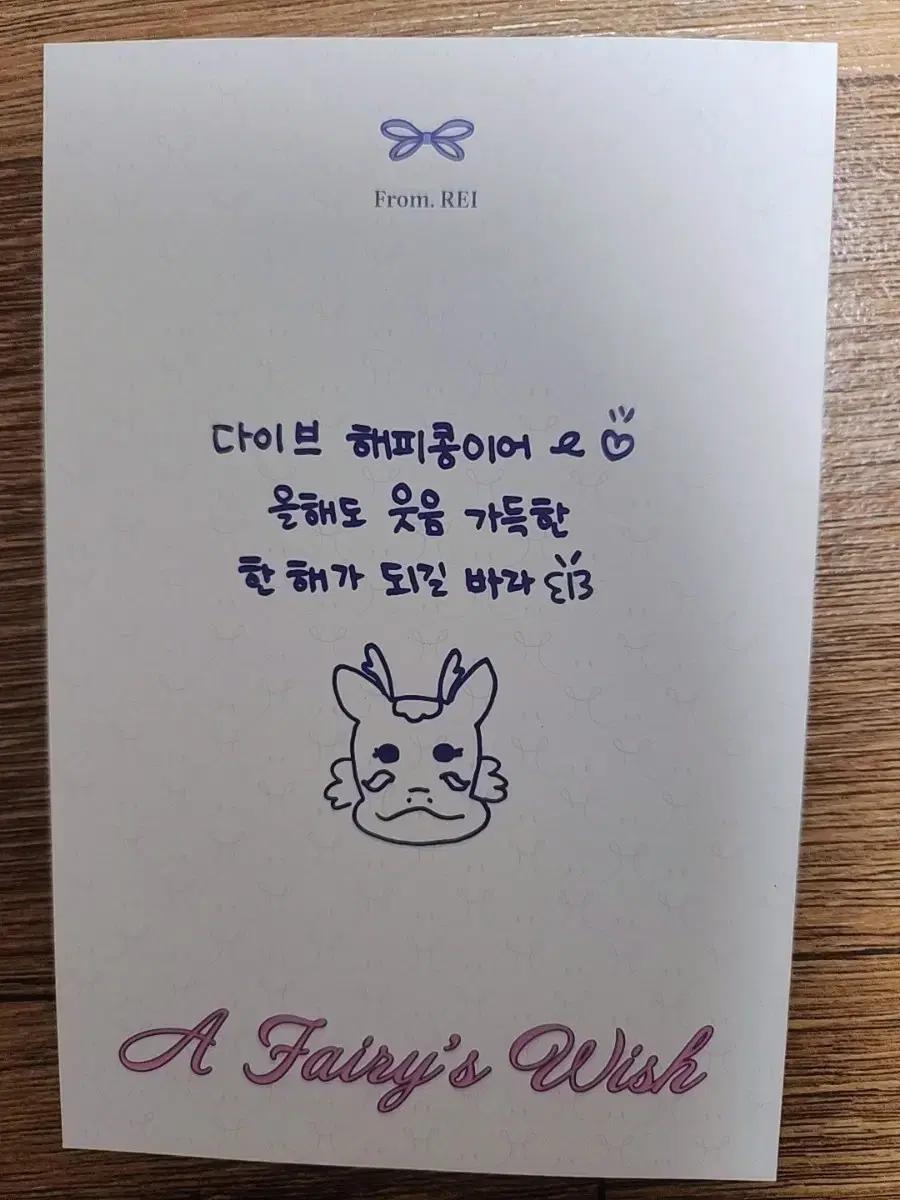 From. REI
다이브 해피콩이어 ~ ♡
올해도 웃음 가득한
한 해가 되길 바라 ε13
A Fairy's Wish